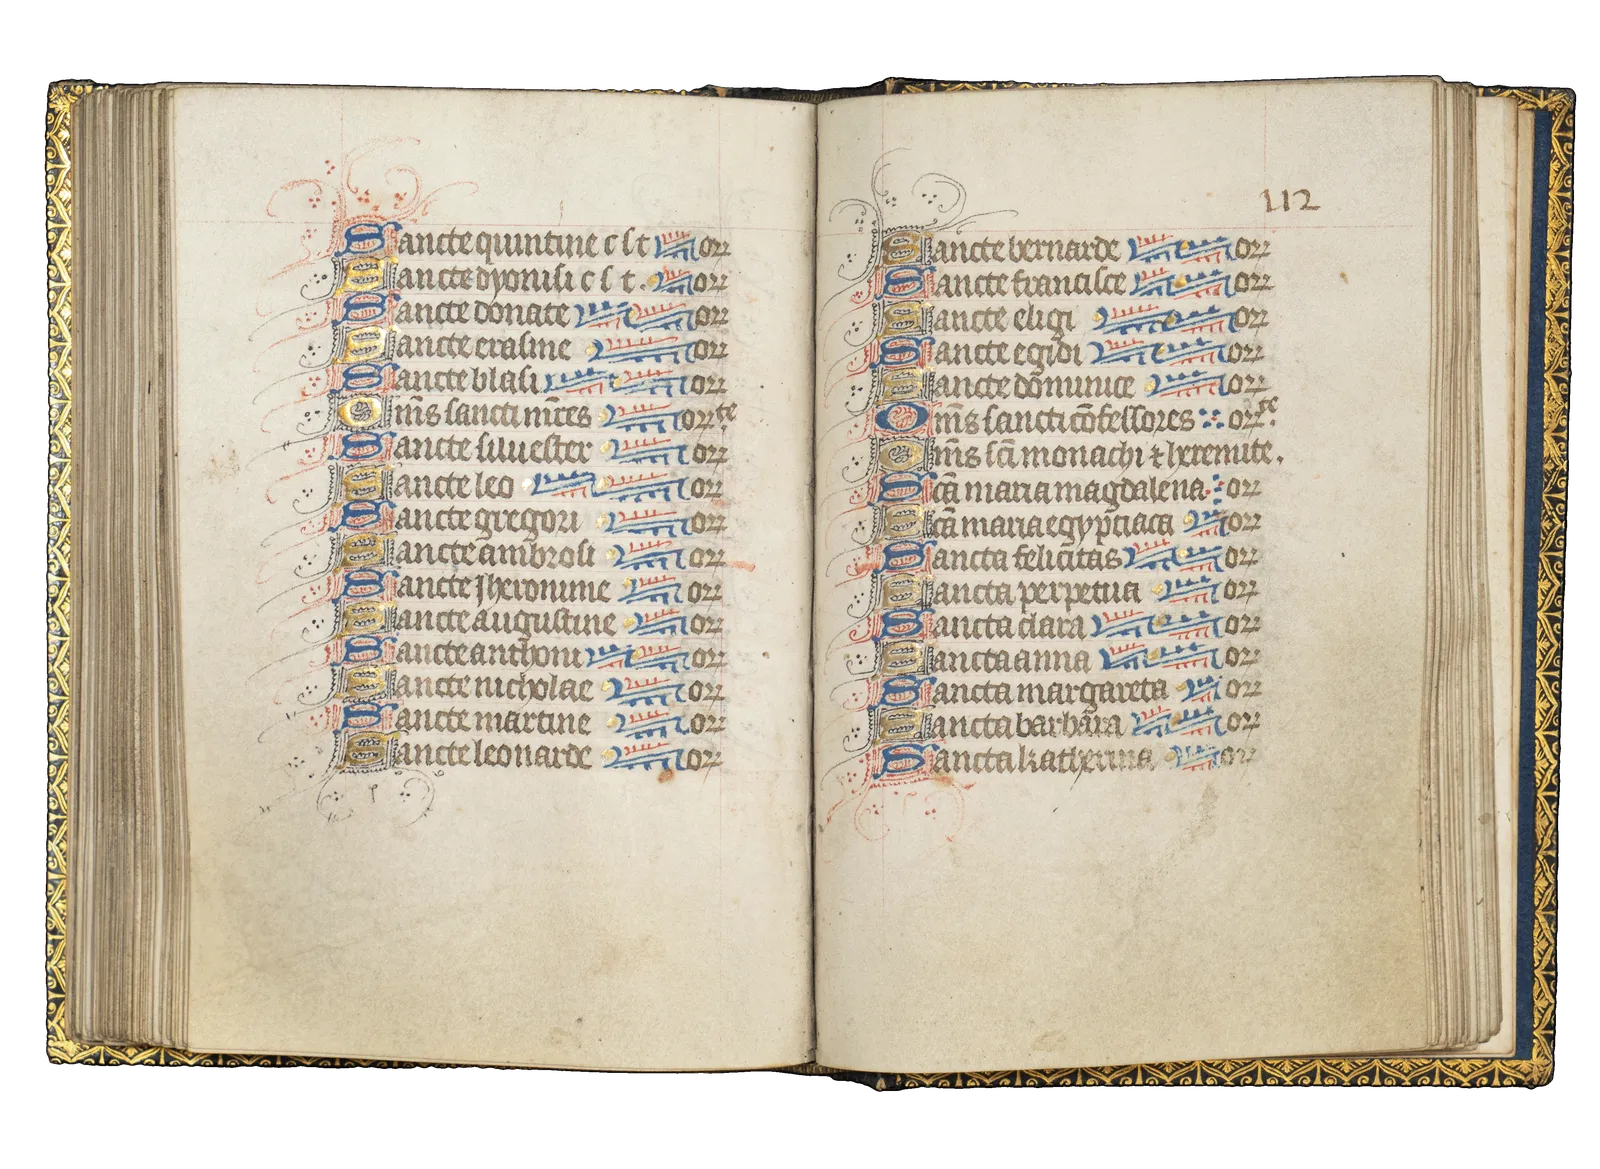 Sancte quintine c s t or
Sancte dyonisi c s t . or
Sancte donate or
Sancte erasme or
Sancte blasi or
Om̄s sancti mr̄es or te.
Sancte siluester or
Sancte leo or
Sancte gregori or
Sancte ambrosi or
Sancte Jheronime or
Sancte augustine or
Sancte anthoni or
Sancte nicholae or
Sancte martine or
Sancte leonarde or
112
Sancte bernarde or
Sancte francisce or
Sancte eligi or
Sancte egidi or
Sancte dominice or
Om̄s sancti cōfessores or te.
Om̄s sc̄i monachi ⁊ heremite.
Sc̄a maria magdalena or
Sc̄a maria egyptiaca or
Sancta felicitas or
Sancta perpetua or
Sancta clara or
Sancta anna or
Sancta margareta or
Sancta barbara or
Sancta katherina or